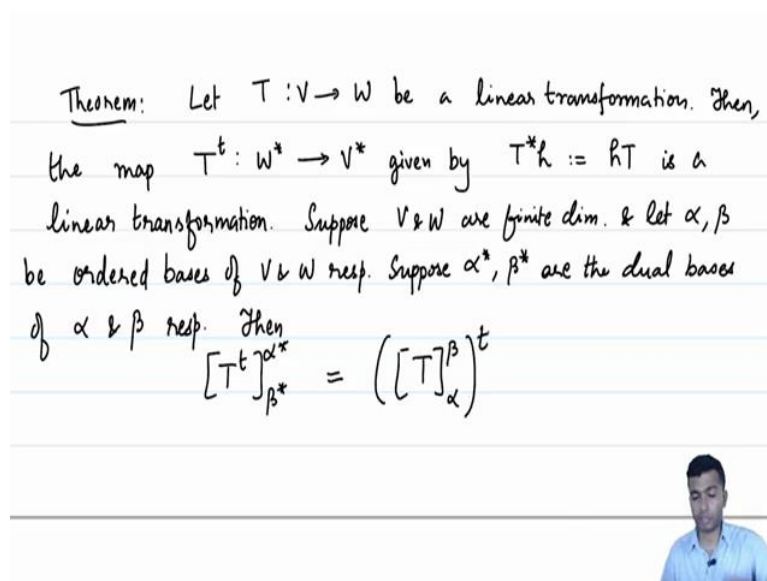 Theorem: Let T : V → W be a linear transformation. Then,
the map Tᵗ : W* → V* given by T*h := hT is a
linear transformation. Suppose V & W are finite dim. & let α, β
be ordered bases of V & W resp. Suppose α*, β* are the dual bases
of α & β resp. Then
[Tᵗ]_{β*}^{α*} = ([T]_α^β)ᵗ